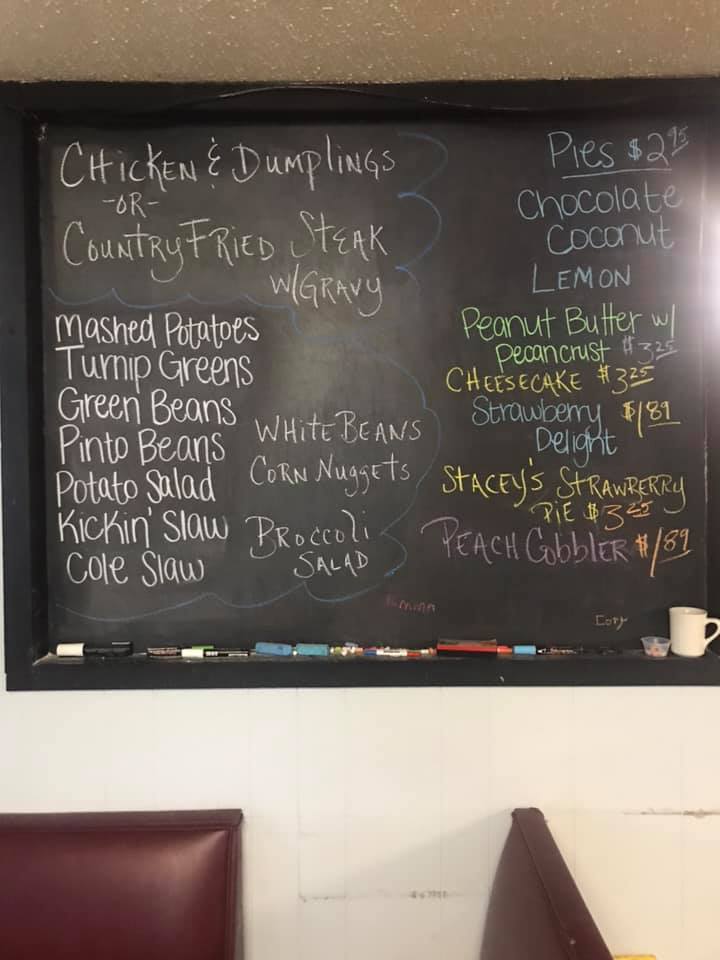 CHICKEN & DUMPLINGS
-OR-
COUNTRY FRIED STEAK
W/GRAVY
Mashed Potatoes
Turnip Greens
Green Beans
Pinto Beans
Potato Salad
Kickin' Slaw
Cole Slaw
WHITE BEANS
CORN NUGGETS
BROCCOLI
SALAD
Pies $2.95
Chocolate
Coconut
LEMON
Peanut Butter w/
pecancrust $3.25
CHEESECAKE $3.25
Strawberry $1.89
Delight
STACEY'S STRAWRERRY
PIE $3.25
PEACH CObblER $1.89
Cory